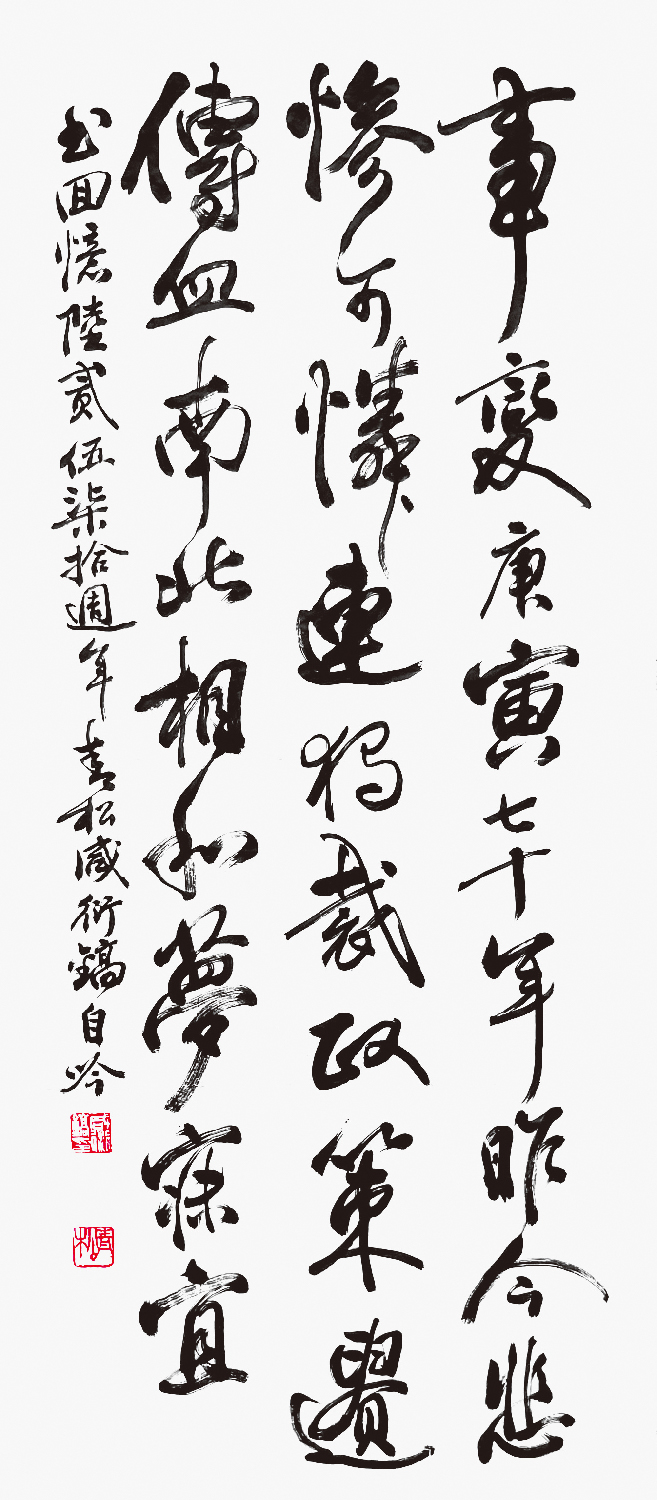 事變庚寅七十年昨今悲
慘可憐連獨裁政策遺
傳血南北相和夢寐宜
書回憶陸貳伍柒拾週年青松咸衍鎬自吟